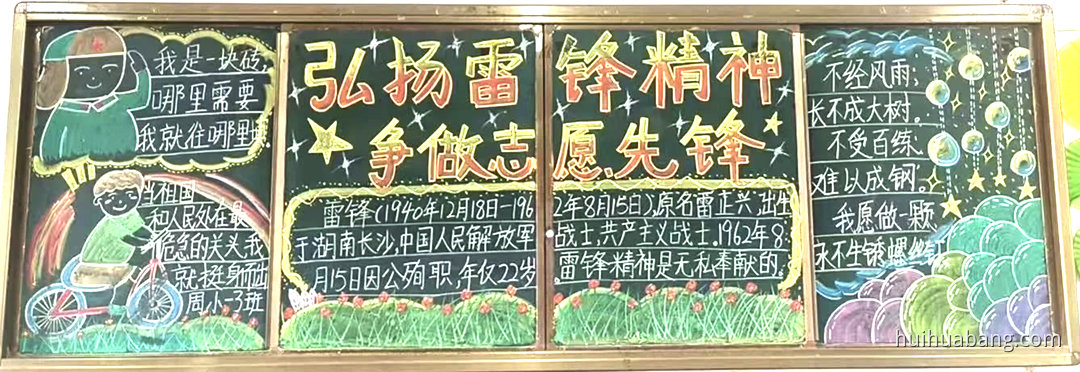 我是一块砖,
哪里需要
我就往哪里
当祖国
和人民处在最
危急的关头,我
就挺身而出
周小3班
弘扬雷锋精神
争做志愿先锋
雷锋(1940年12月18日一1962年8月15日),原名雷正兴,出生
于湖南长沙,中国人民解放军战士,共产主义战士.1962年8
月15日因公殉职,年仅22岁雷锋精神是无私奉献的.
不经风雨,
长不成大树。
不受百练.
难以成钢。
我愿做一颗
永不生锈螺丝钉
huihuabang.com